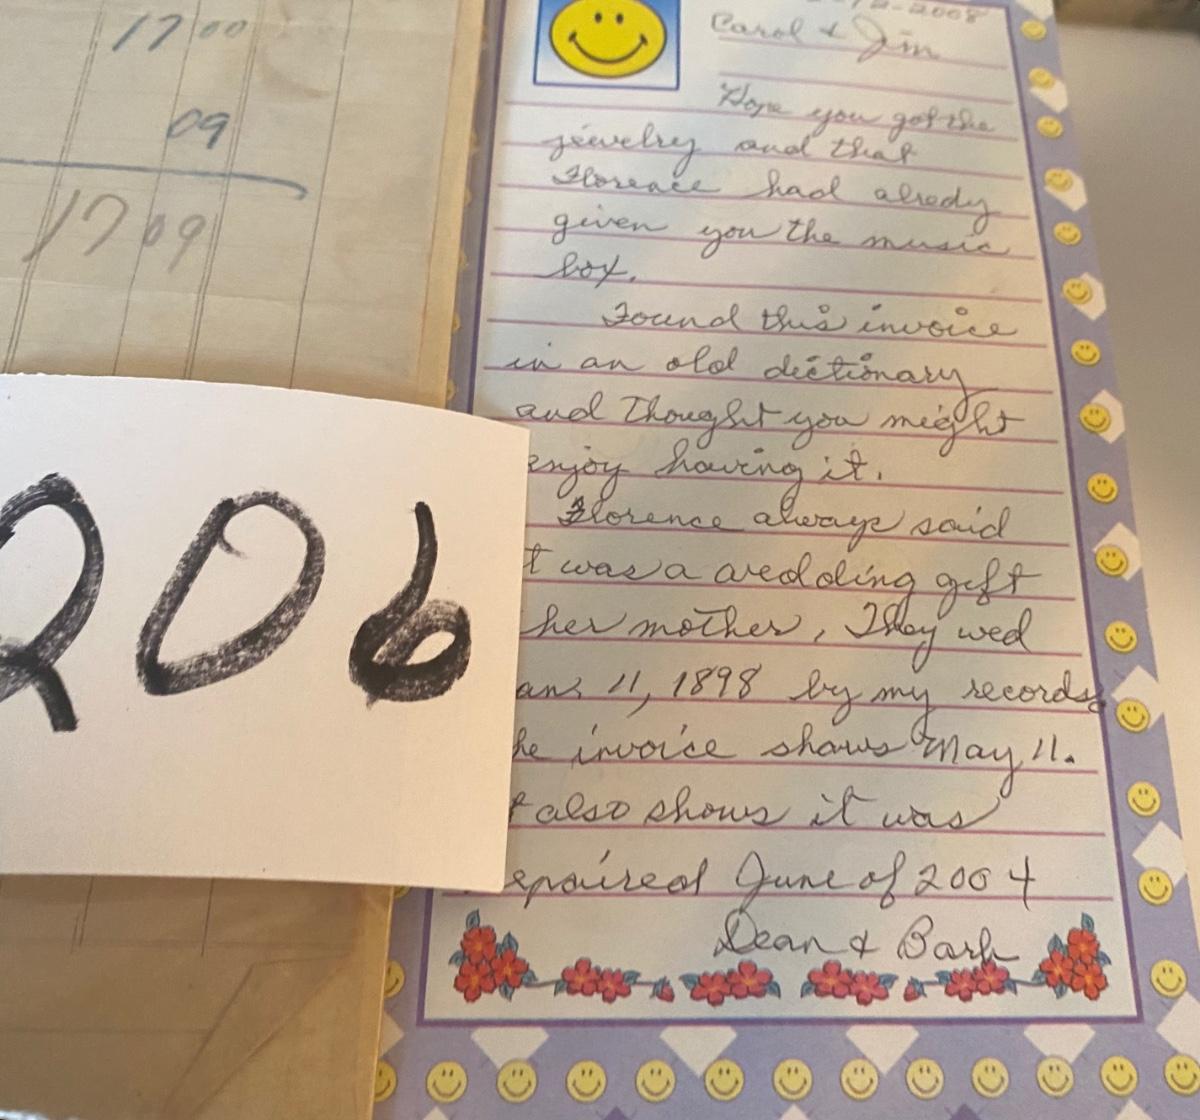 17 00
09
17 09
206
-12-2008
Carol & Jim
Hope you got the
jewelry and that
Florence had alredy
given you the music
box.
Found this invoice
in an old dictionary
and thought you might
enjoy having it.
Florence always said
t was a wedding gift
her mother, They wed
an. 11, 1898 by my records
he invoice shows May 11.
t also shows it was
epaired June of 2004
Dean & Barb